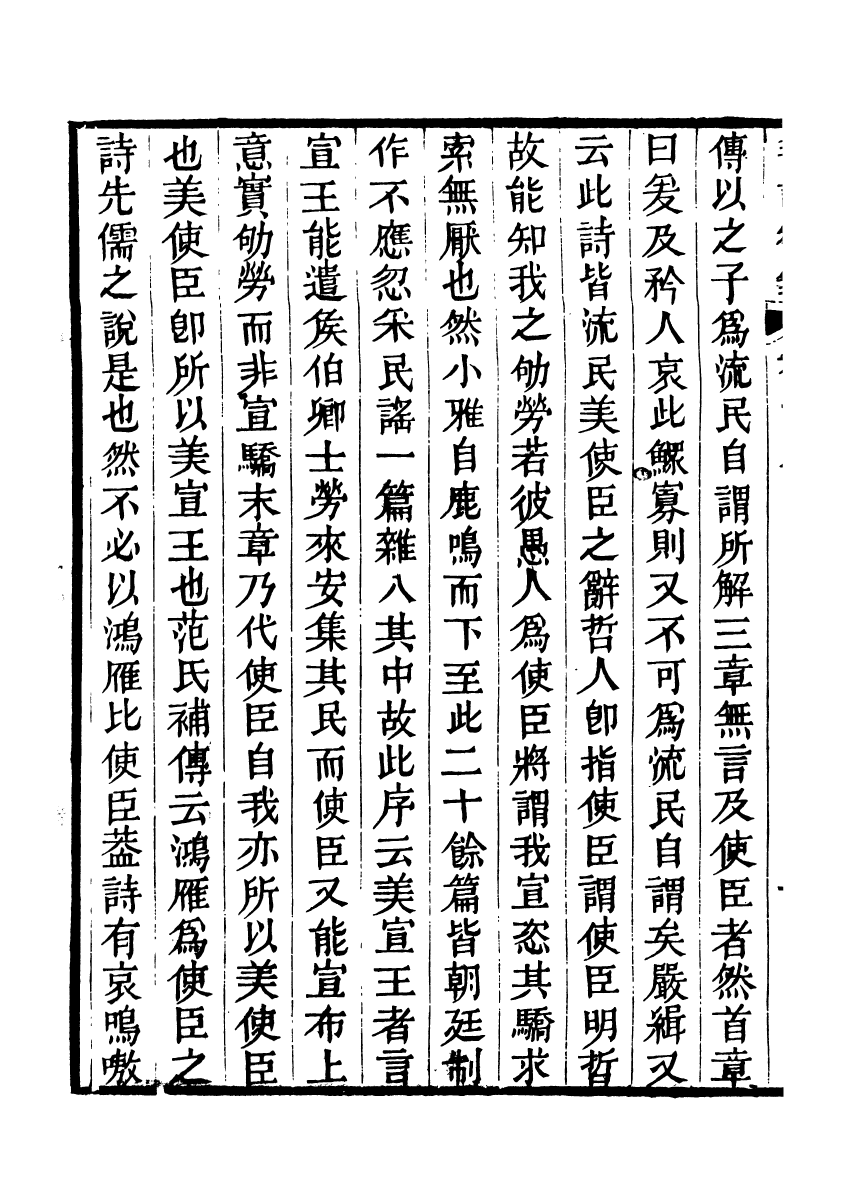 傳以之子爲流民自謂所解三章無言及使臣者然首章
曰爰及矜人哀此鰥寡則又不可爲流民自謂矣嚴緝又
云此詩皆流民美使臣之辭哲人卽指使臣謂使臣明哲
故能知我之劬勞若彼愚人爲使臣將謂我宣恣其驕求
索無厭也然小雅自鹿鳴而下至此二十餘篇皆朝廷制
作不應忽采民謠一篇雜入其中故此序云美宣王者言
宣王能遣矦伯卿士勞來安集其民而使臣又能宣布上
意實劬勞而非宣驕末章乃代使臣自我亦所以美使臣
也美使臣卽所以美宣王也范氏補傳云鴻雁爲使臣之
詩先儒之說是也然不必以鴻雁比使臣葢詩有哀鳴嗸